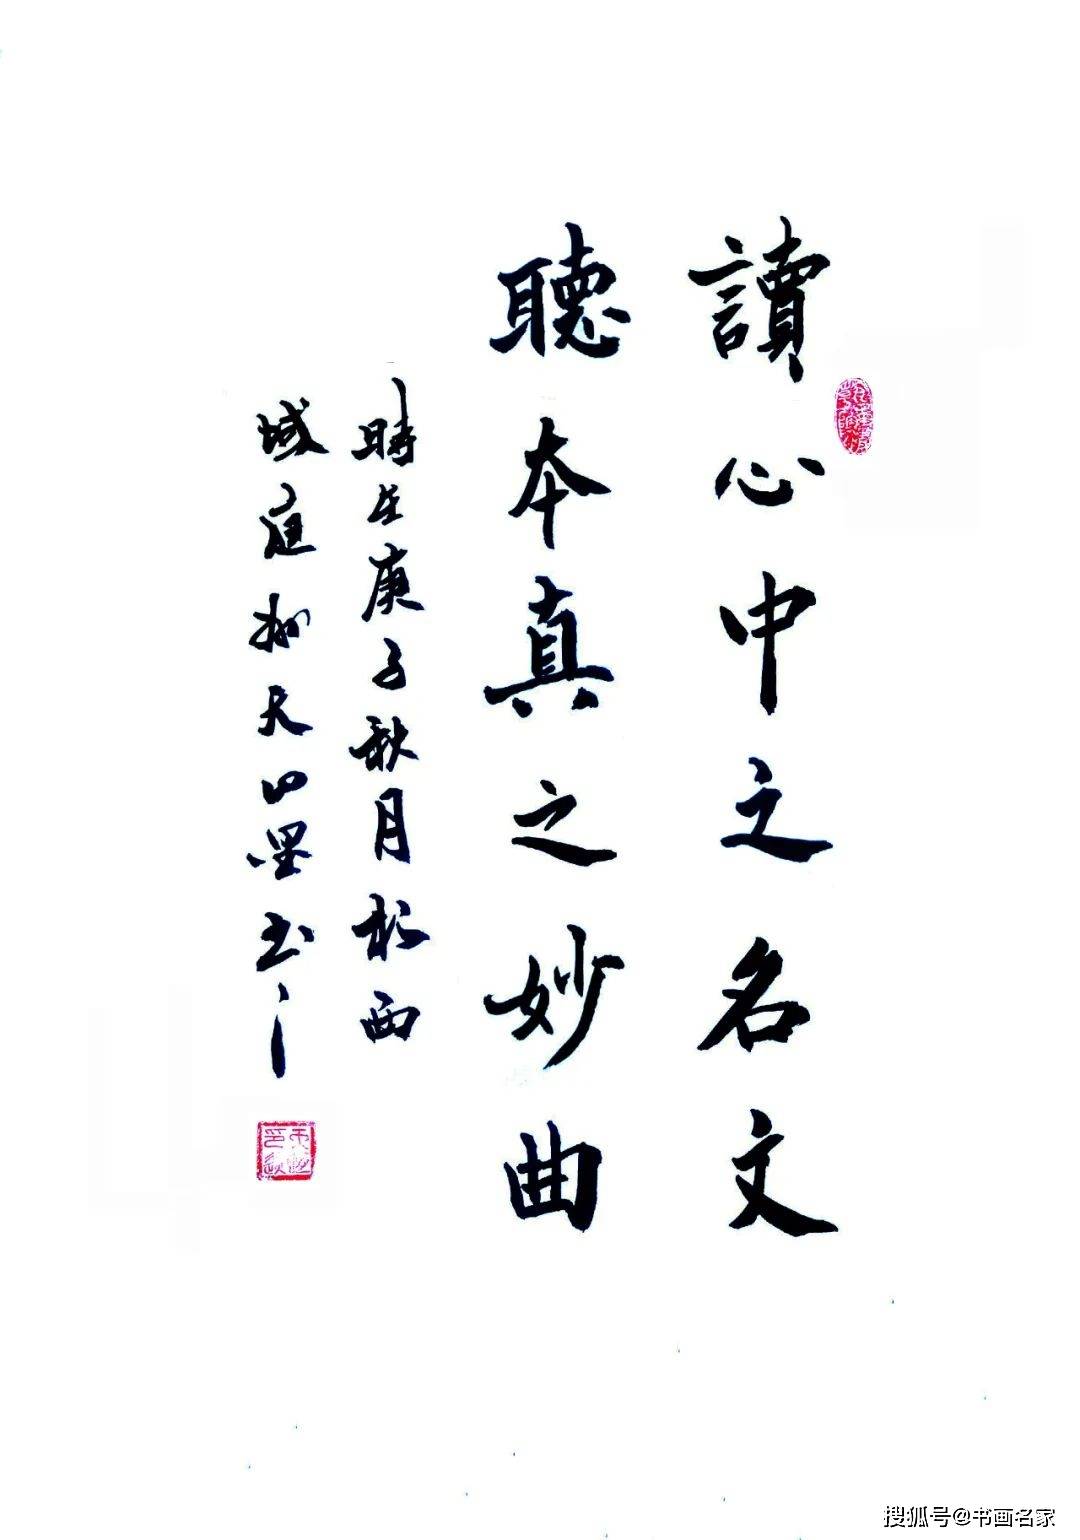 讀心中之名文
聽本真之妙曲
時在庚子秋月於西
域庭州天山墨書
搜狐号@书画名家